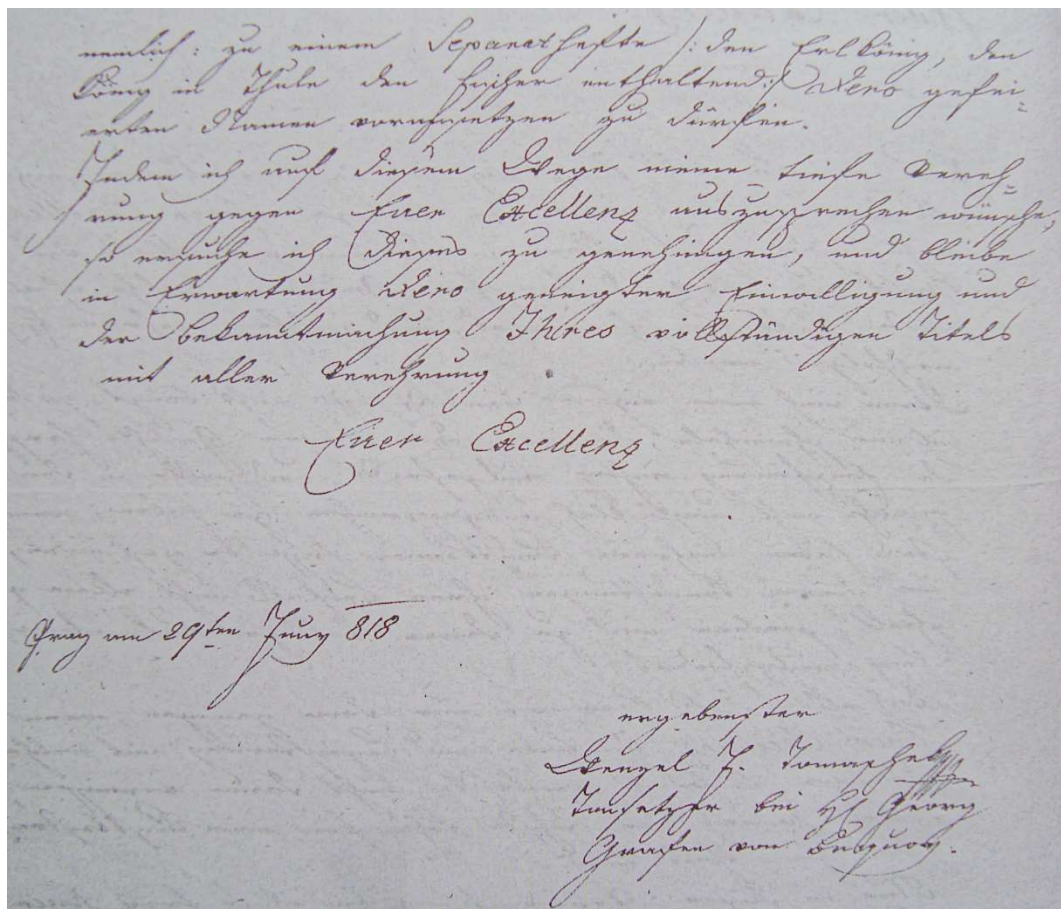 nemlich: zu einem Separathefte /: den Erlkönig, den
König in Thule den Fischer enthaltend:/ Dero gefei-
erten Namen voraussetzen zu dürfen.
Indem ich auf diesem Wege meine tiefe Vereh-
rung gegen Euer Excellenz auszusprechen wünsche,
so ersuche ich dieses zu genehmigen, und bleibe
in Erwartung Dero geneigter Einwilligung und
der Bekanntmachung Ihres vollständigen Titels
mit aller Verehrung
Euer Excellenz
Prag am 29ten Juny 818
ergebenster
Wenzel J. Tomaschek
Tonsetzer bei H. Georg
Grafen von Buquoy.